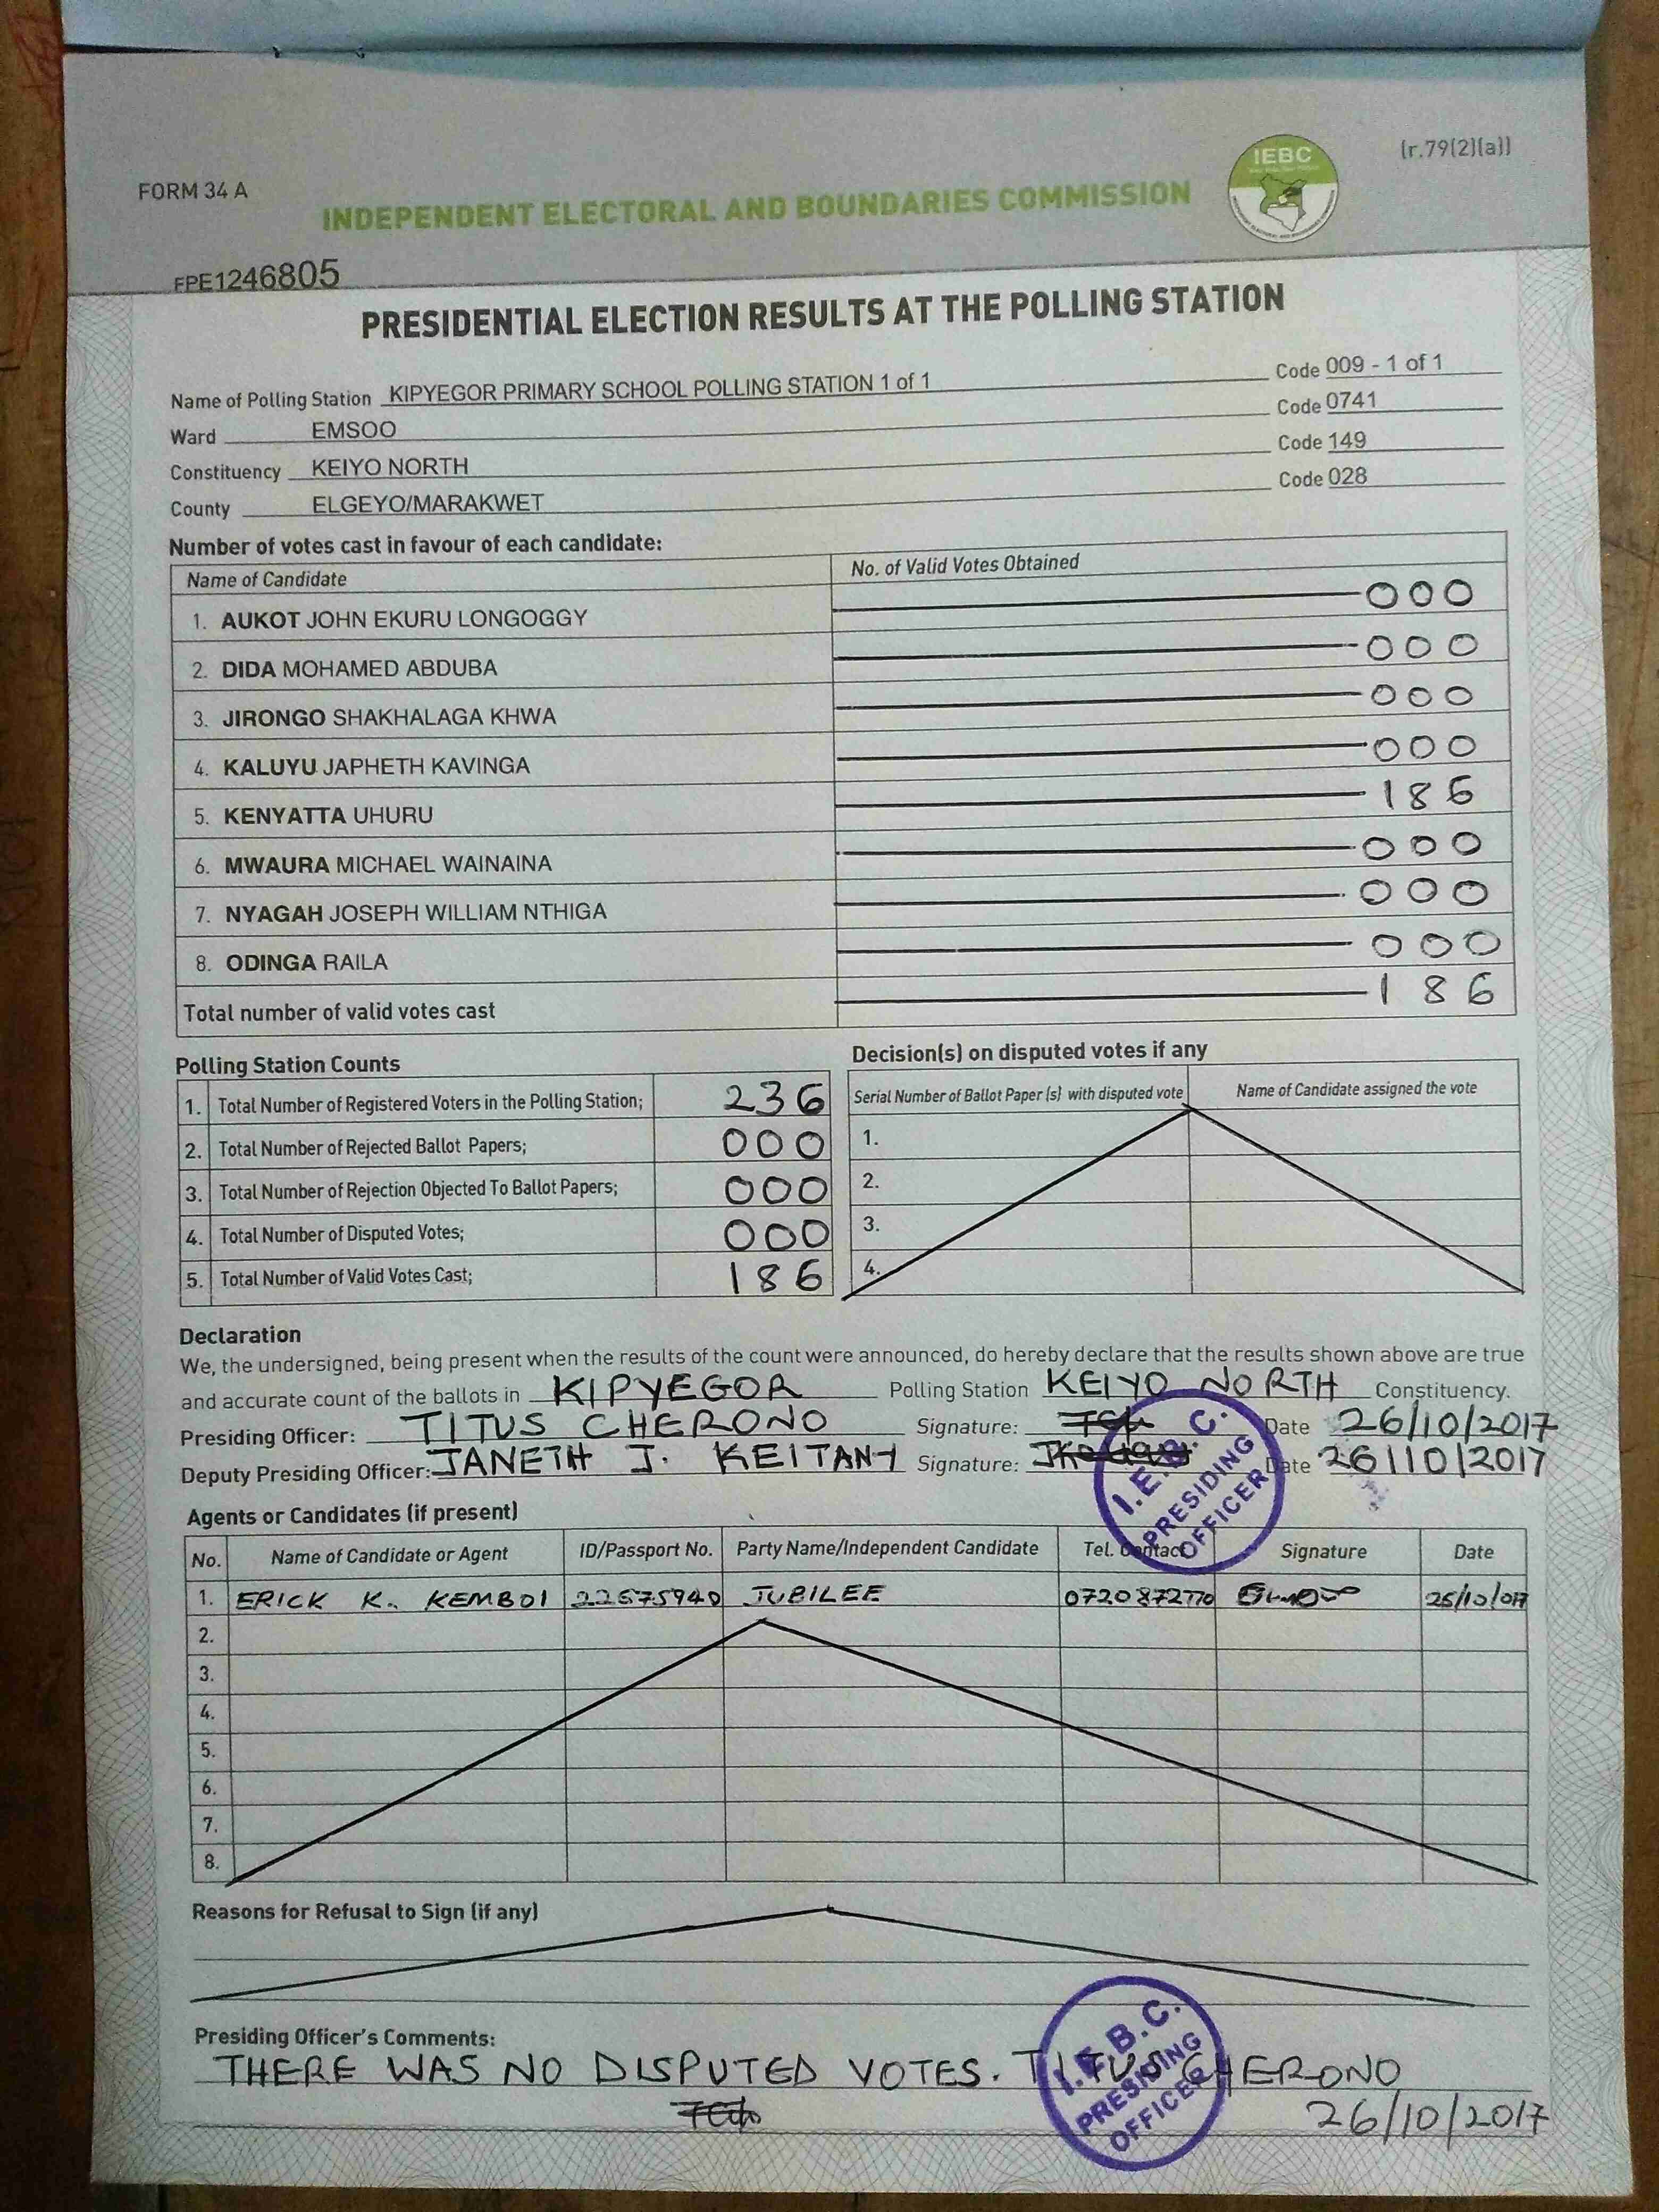 (r.79(2)(a))
IEBC
FORM 34 A
INDEPENDENT ELECTORAL AND BOUNDARIES COMMISSION
FPE1246805
PRESIDENTIAL ELECTION RESULTS AT THE POLLING STATION
Name of Polling Station KIPYEGOR PRIMARY SCHOOL POLLING STATION 1 of 1 Code 009 - 1 of 1
Ward EMSOO Code 0741
Constituency KEIYO NORTH Code 149
County ELGEYO/MARAKWET Code 028
Number of votes cast in favour of each candidate:
Name of Candidate No. of Valid Votes Obtained
1. AUKOT JOHN EKURU LONGOGGY 000
2. DIDA MOHAMED ABDUBA 000
3. JIRONGO SHAKHALAGA KHWA 000
4. KALUYU JAPHETH KAVINGA 000
5. KENYATTA UHURU 186
6. MWAURA MICHAEL WAINAINA 000
7. NYAGAH JOSEPH WILLIAM NTHIGA 000
8. ODINGA RAILA 000
Total number of valid votes cast 186
Polling Station Counts
1. Total Number of Registered Voters in the Polling Station; 236
2. Total Number of Rejected Ballot Papers; 000
3. Total Number of Rejection Objected To Ballot Papers; 000
4. Total Number of Disputed Votes; 000
5. Total Number of Valid Votes Cast; 186
Decision(s) on disputed votes if any
Serial Number of Ballot Paper (s) with disputed vote Name of Candidate assigned the vote
1.
2.
3.
4.
Declaration
We, the undersigned, being present when the results of the count were announced, do hereby declare that the results shown above are true
and accurate count of the ballots in KIPYEGOR Polling Station KEIYO NORTH Constituency.
Presiding Officer: TITUS CHERONO Signature: Date 26/10/2017
Deputy Presiding Officer: JANETH J. KEITANY Signature: Date 26/10/2017
I.E.B.C. PRESIDING OFFICER
Agents or Candidates (if present)
No. Name of Candidate or Agent ID/Passport No. Party Name/Independent Candidate Tel. Contact Signature Date
1. ERICK K. KEMBOI 22675940 JUBILEE 0720872770
2.
3.
4.
5.
6.
7.
8.
Reasons for Refusal to Sign (if any)
Presiding Officer's Comments:
THERE WAS NO DISPUTED VOTES. TITUS CHERONO
26/10/2017
I.E.B.C. PRESIDING OFFICER